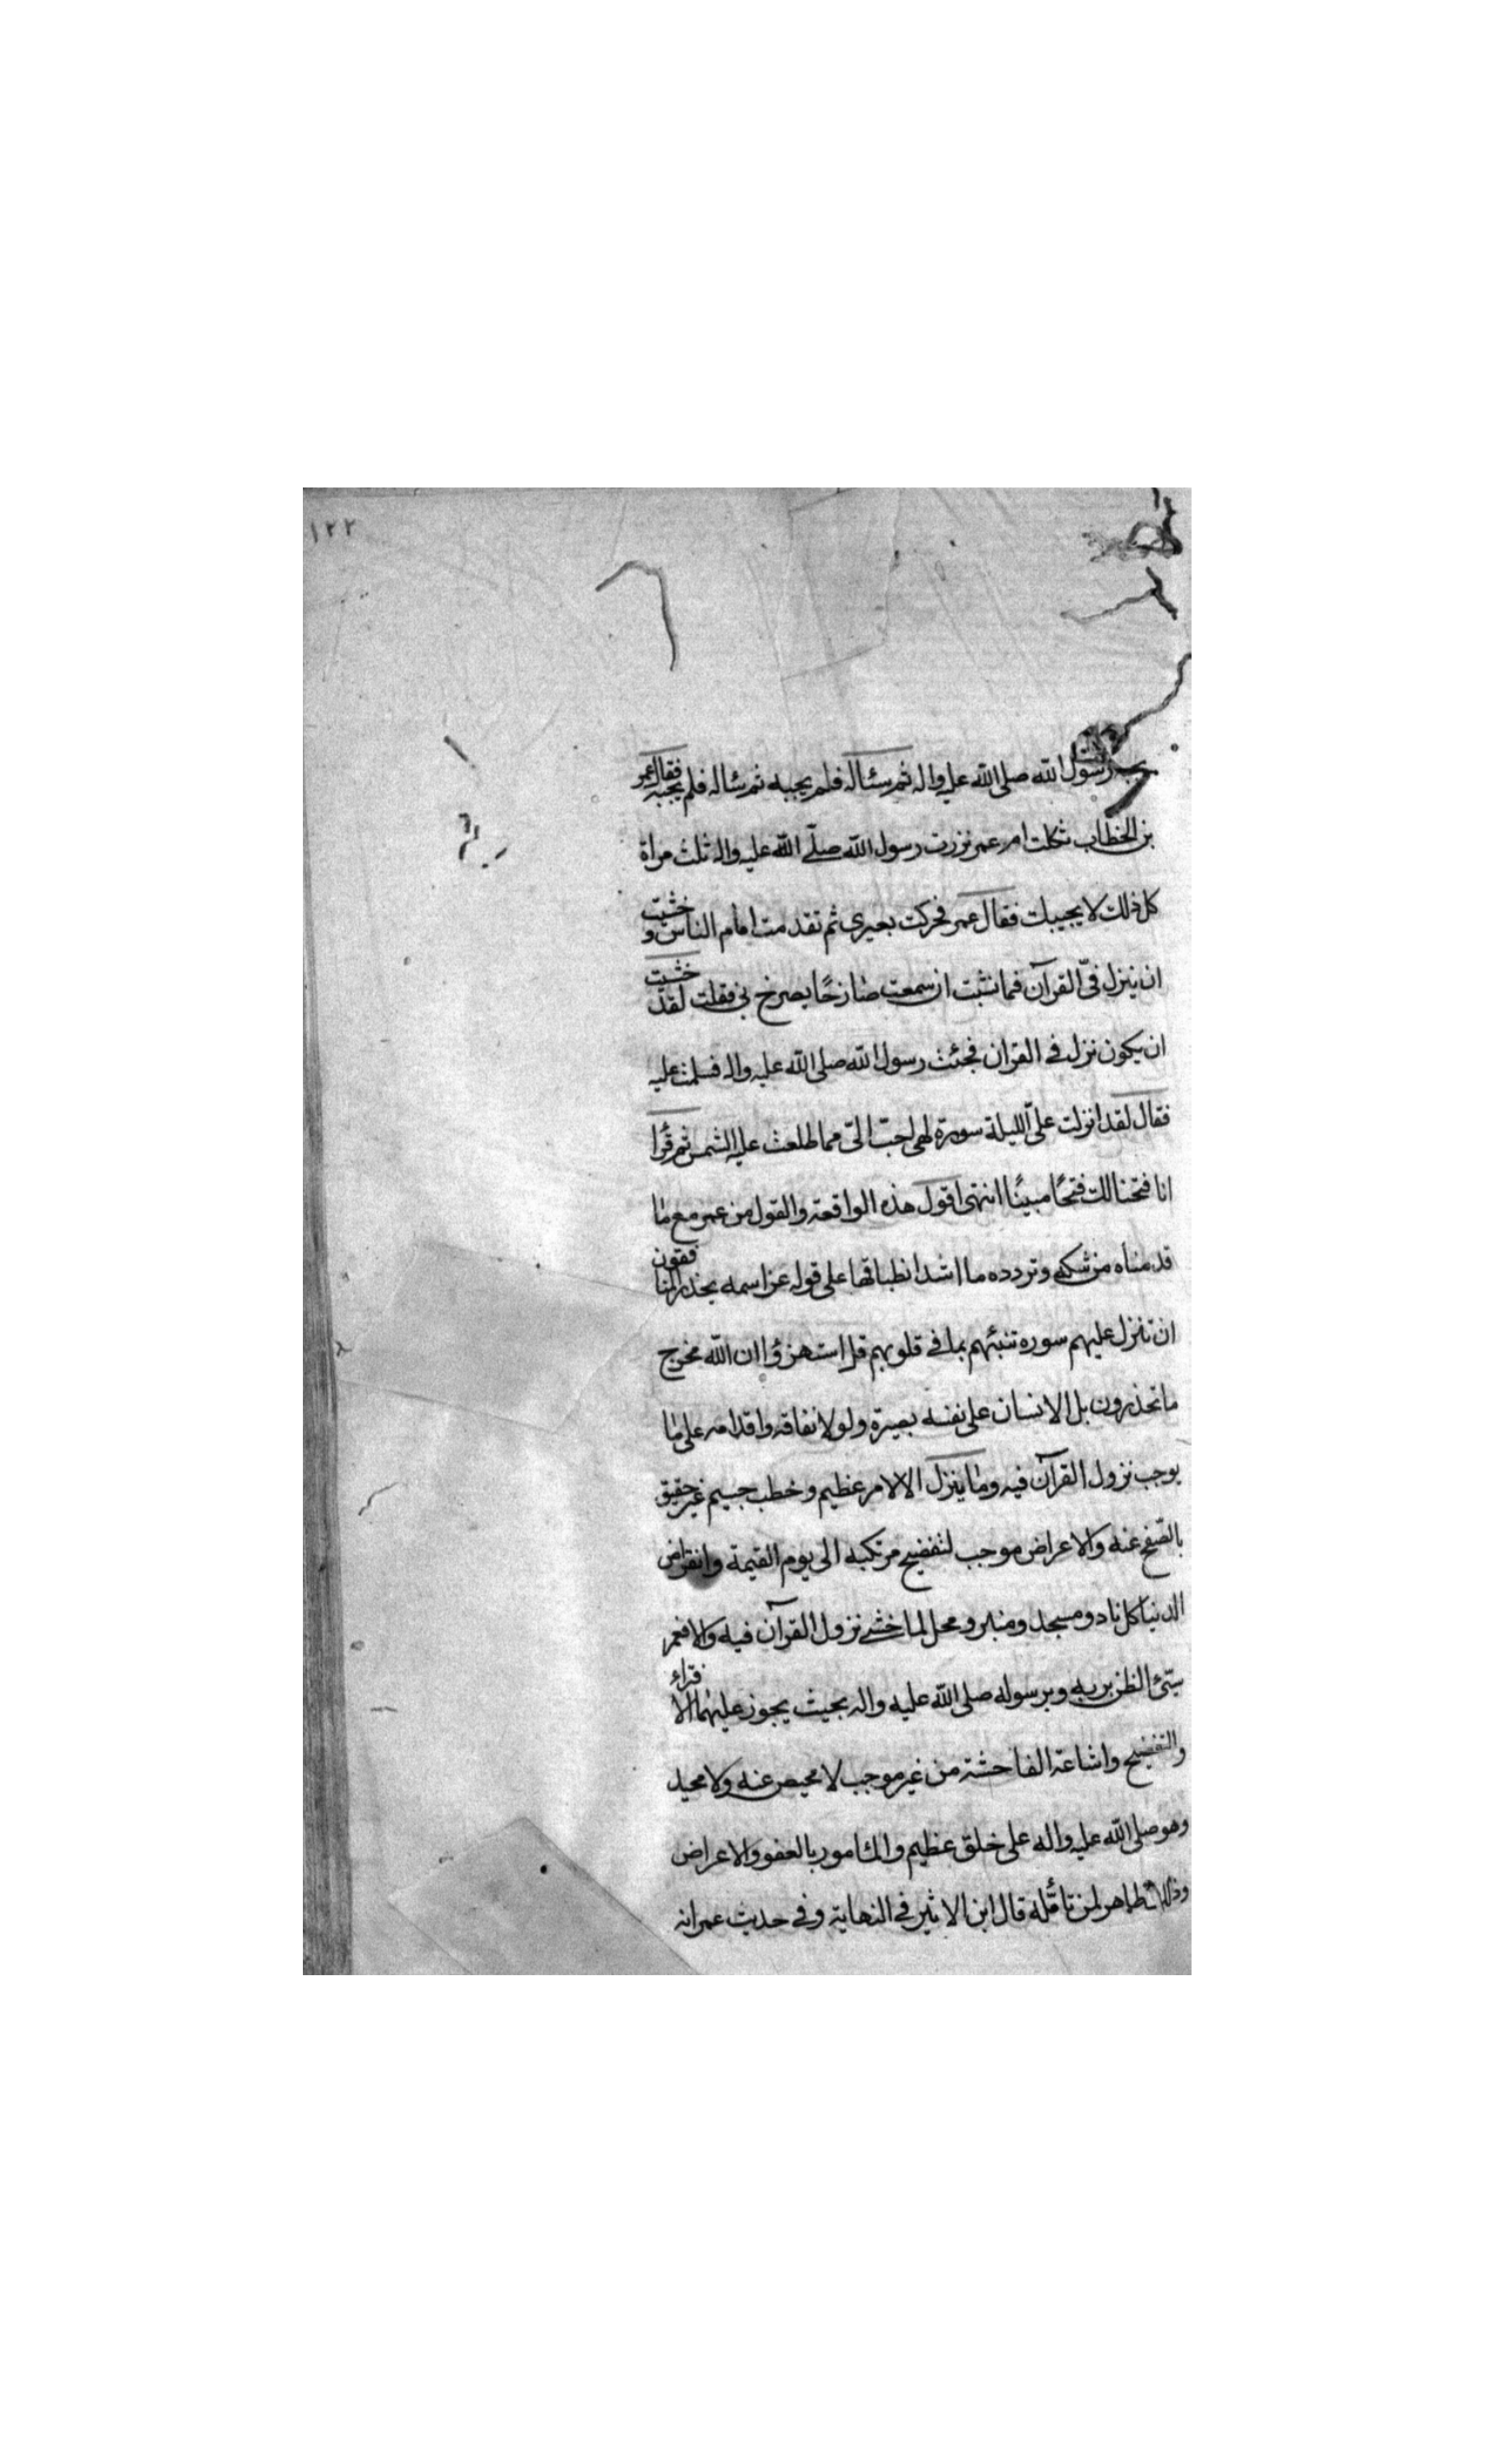 ١٢٢
يجبه رسول الله صلى الله عليه واله ثم سئاله فلم يجبه ثم سئاله فلم يجبه فقال عمر
بن الخطاب ثكلت ام عمر نزرت رسول الله صلّى الله عليه واله ثلث مراة
كل ذلك لا يجيبك فقال عمر فحركت بعيرى ثم تقدمت امام الناس و خشيت
ان ينزل فىّ القرآن فما نشبت ان سمعت صارخًا يصرخ بى فقلت لقد خشيت
ان يكون نزل فى القران فجئت رسول الله صلى الله عليه واله فسلمت عليه
فقال لقد انزلت علىّ الليلة سورة لهى احبّ الىّ مما طلعت عليه الشمس ثم قرأ
انا فتحنا لك فتحًا مبينًا انتهى اقول هذه الواقعة والقول من عمر مع ما
قدمناه من شكه وتردده ما اشد انطباقها على قوله عز اسمه يحذر المنافقون
ان تنزل عليهم سورة تنبئهم بما فى قلوبهم قل استهزؤا ان الله مخرج
ما تحذرون بل الانسان على نفسه بصيرة ولولا نفاقه واقدامه على ما
يوجب نزول القرآن فيه وما ينزل الا لامر عظيم وخطب جسيم غير حقيق
بالصّفح عنه والاعراض موجب لتفضيح مرتكبه الى يوم القيمة وانقراض
الدنيا كل ناد ومسجد ومنبر ومحل لما خشى نزول القرآن فيه والا فعمر
سيّئ الظن بربه وبرسوله صلى الله عليه واله بحيث يجوز عليهما الافتراء
والتفضيح واشاعة الفاحشة من غير موجب لا محيص عنه ولا محيد
وهو صلى الله عليه واله على خلق عظيم والمامور بالعفو والاعراض
وذلك ظاهر لمن تامّله قال ابن الاثير فى النهاية وفى حديث عمر انه